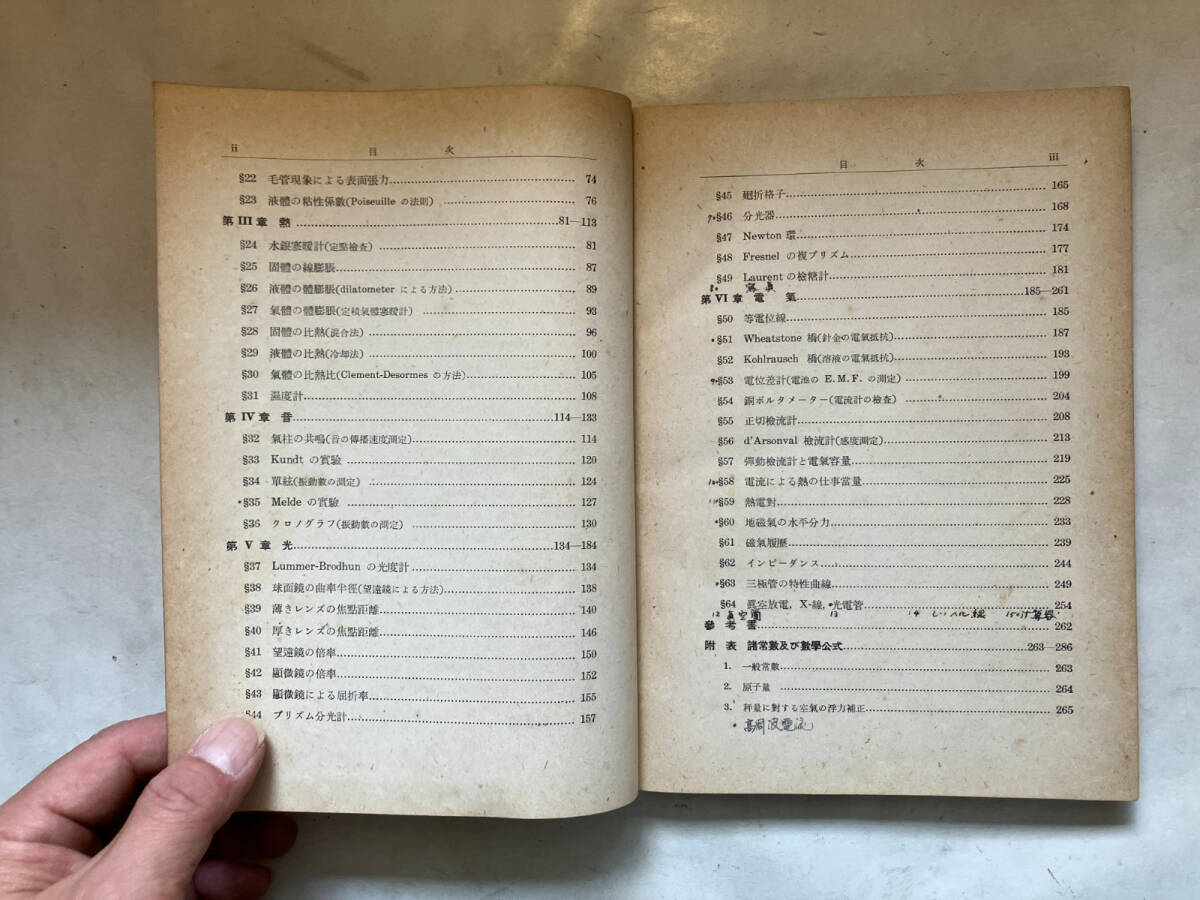 ii 目次
§22 毛管現象による表面張力 74
§23 液體の粘性係數(Poiseuille の法則) 76
第 III 章 熱 81—113
§24 水銀寒暖計(定點檢查) 81
§25 固體の線膨脹 87
§26 液體の體膨脹(dilatometer による方法) 89
§27 氣體の體膨脹(定積氣體寒暖計) 93
§28 固體の比熱(混合法) 96
§29 液體の比熱(冷却法) 100
§30 氣體の比熱比(Clement-Desormes の方法) 105
§31 濕度計 108
第 IV 章 音 114—133
§32 氣柱の共鳴(音の傳播速度測定) 114
§33 Kundt の實驗 120
§34 單絃(振動數の測定) 124
§35 Melde の實驗 127
§36 クロノグラフ(振動數の測定) 130
第 V 章 光 134—184
§37 Lummer-Brodhun の光度計 134
§38 球面鏡の曲率半徑(望遠鏡による方法) 138
§39 薄きレンズの焦點距離 140
§40 厚きレンズの焦點距離 146
§41 望遠鏡の倍率 150
§42 顯微鏡の倍率 152
§43 顯微鏡による屈折率 155
§44 プリズム分光計 157
目次 iii
§45 廻折格子 165
§46 分光器 168
§47 Newton 環 174
§48 Fresnel の複プリズム 177
§49 Laurent の檢糖計 181
寫眞
第 VI 章 電氣 185—261
§50 等電位線 185
§51 Wheatstone 橋(針金の電氣抵抗) 187
§52 Kohlrausch 橋(溶液の電氣抵抗) 193
§53 電位差計(電池の E.M.F. の測定) 199
§54 銅ボルタメーター(電流計の檢查) 204
§55 正切檢流計 208
§56 d'Arsonval 檢流計(感度測定) 213
§57 彈動檢流計と電氣容量 219
§58 電流による熱の仕事當量 225
§59 熱電對 228
§60 地磁氣の水平分力 233
§61 磁氣履歷 239
§62 インピーダンス 244
§63 三極管の特性曲線 249
§64 眞空放電, X-線, 光電管 254
12 13 14 15 計算器
參考書 262
附表 諸常數及び數學公式 263—286
1. 一般常數 263
2. 原子量 264
3. 秤量に對する空氣の浮力補正 265
高周波電流